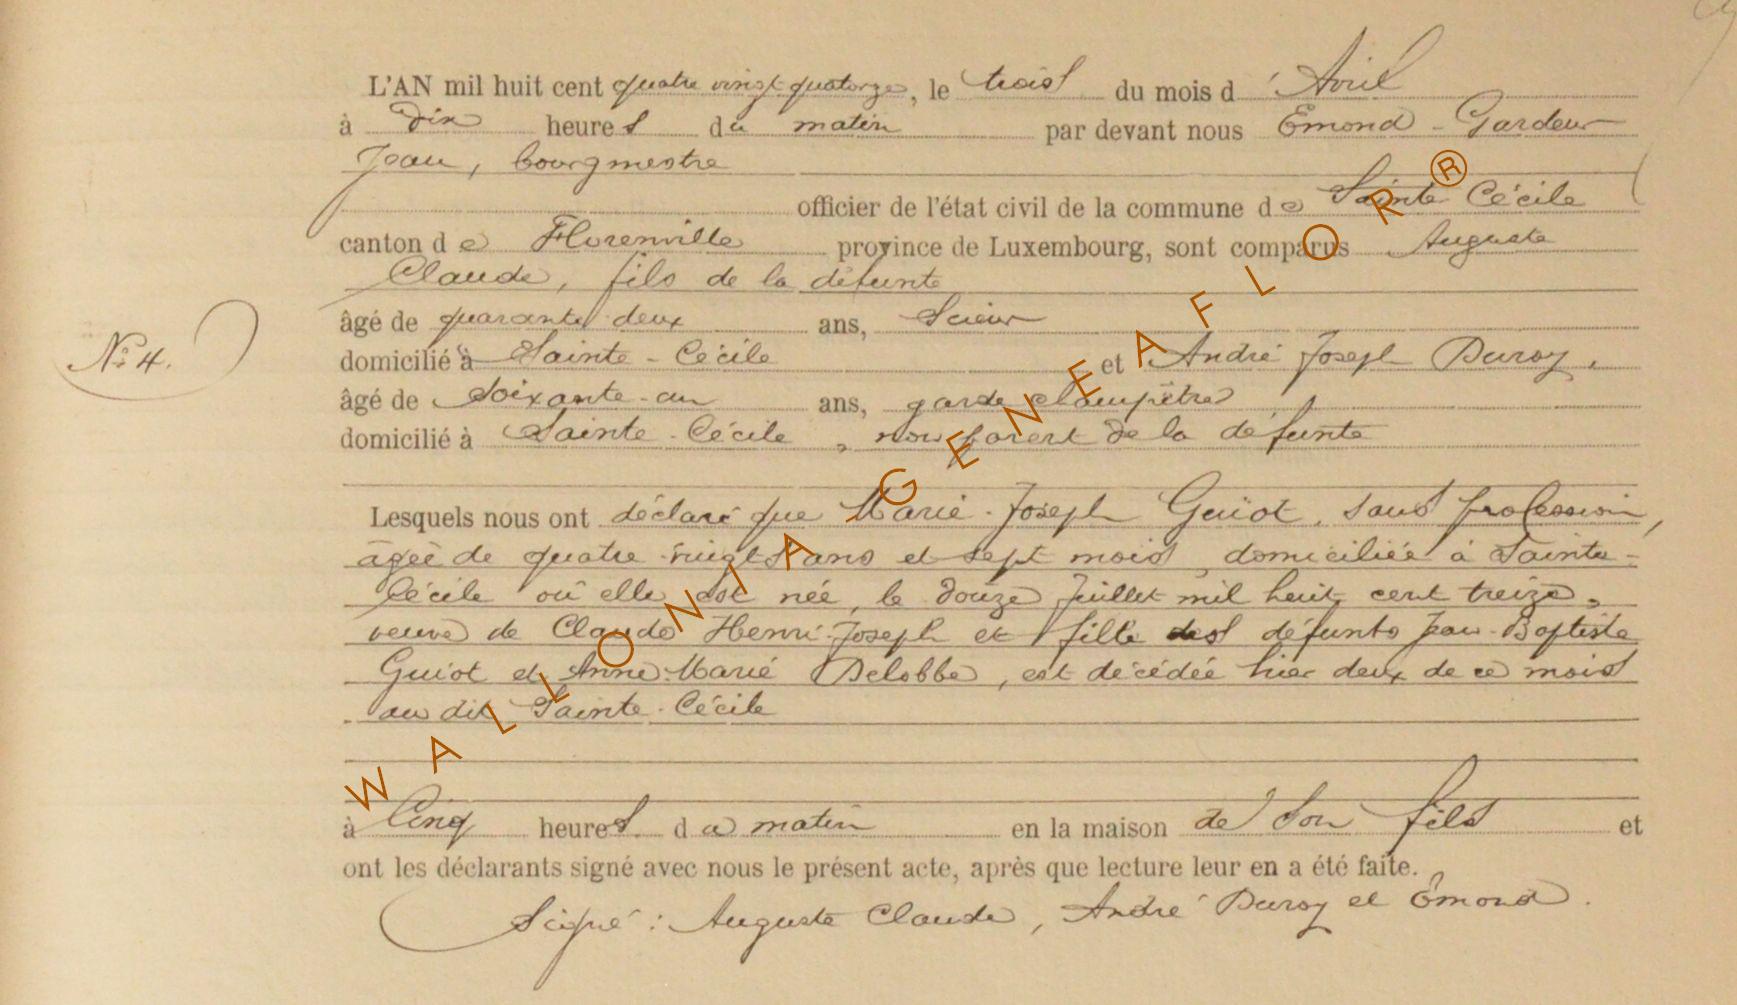 L'AN mil huit cent quatre vingt quatorze, le trois du mois d'Avril
à dix heures du matin par devant nous Emond-Gardeur
Jean, bourgmestre
officier de l'état civil de la commune de Sainte Cécile
canton de Florenville province de Luxembourg, sont comparus Auguste
Claude, fils de la défunte
âgé de quarante deux ans, Scieur
domicilié à Sainte-Cécile et André Joseph Duroy,
âgé de Soixante-un ans, garde champêtre
N° 4.
domicilié à Sainte-Cécile, non parent de la défunte
Lesquels nous ont déclaré que Marie-Joseph Guiot, sans profession,
âgée de quatre-vingts ans et sept mois, domiciliée à Sainte-
Cécile où elle est née, le douze Juillet mil huit cent treize,
veuve de Claude Henri-Joseph et fille des défunts Jean-Baptiste
Guiot et Anne-Marie Delobbe, est décédée hier deux de ce mois
au dit Sainte-Cécile
à Cinq heures du matin en la maison de Son fils et
ont les déclarants signé avec nous le présent acte, après que lecture leur en a été faite.
Signé : Auguste Claude, André Duroy et Emond.
WALLONIA GENEAFLOR ®